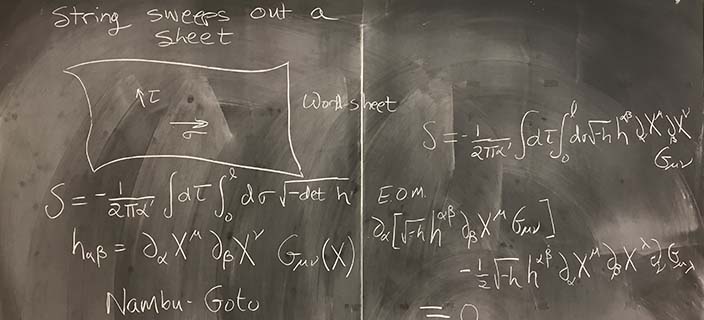 String sweeps out a
sheet
↑τ
World-sheet
→σ
S = -1/2πα' ∫dτ ∫₀ˡ dσ √-det h
h_αβ = ∂_α X^μ ∂_β X^ν G_μν(X)
Nambu-Goto
S = -1/2πα' ∫dτ ∫₀ˡ dσ √-h h^αβ ∂_α X^μ ∂_β X^ν
G_μν
E.O.M.
∂_α [√-h h^αβ ∂_β X^μ G_μν]
-1/2 √-h h^αβ ∂_α X^μ ∂_β X^λ ∂_ν G_μλ
= 0